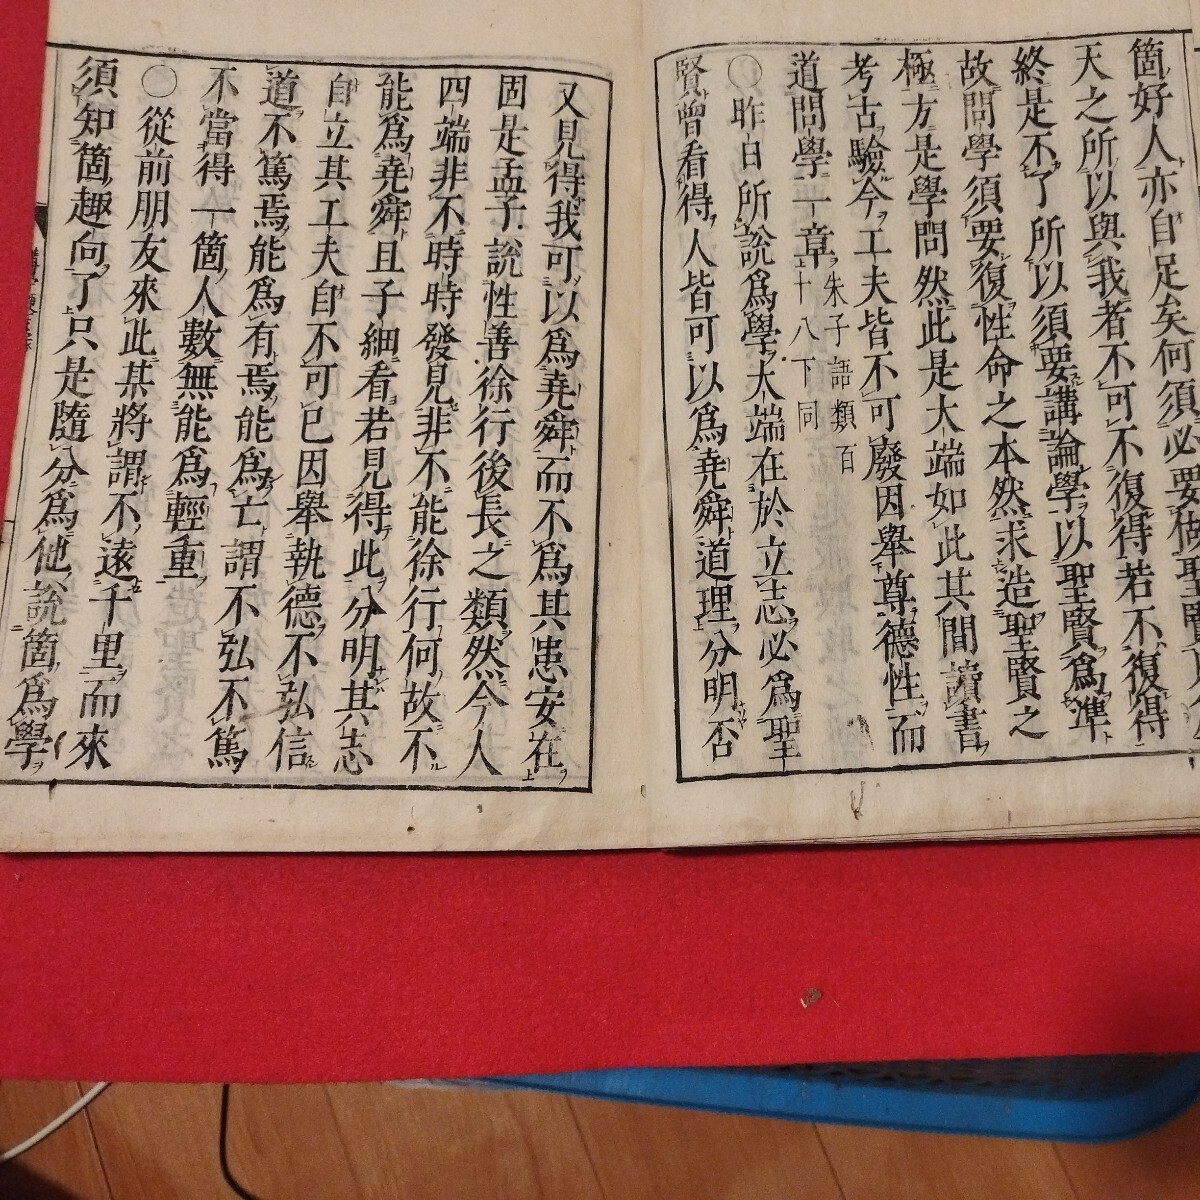 箇好人亦自足矣何須必要做聖賢
天之所以與我者不可不復得若不復得
終是不了所以須要講論學以聖賢爲準
故問學須要復性命之本然求造聖賢之
極方是學問然此是大端如此其間讀書
考古驗今工夫皆不可廢因舉尊德性而
道問學一章朱子語類百
十八下同
○昨日所說爲學大端在於立志必爲聖
賢曾看得人皆可以爲堯舜道理分明否
又見得我可以爲堯舜而不爲其患安在
固是孟子說性善徐行後長之類然今人
四端非不時時發見非不能徐行何故不
能爲堯舜且子細看若見得此分明其志
自立其工夫自不可已因舉執德不弘信
道不篤焉能爲有焉能爲亡謂不弘不篤
不當得一箇人數無能爲輕重
○從前朋友來此某將謂不遠千里而來
須知箇趣向了只是隨分爲他說箇爲學